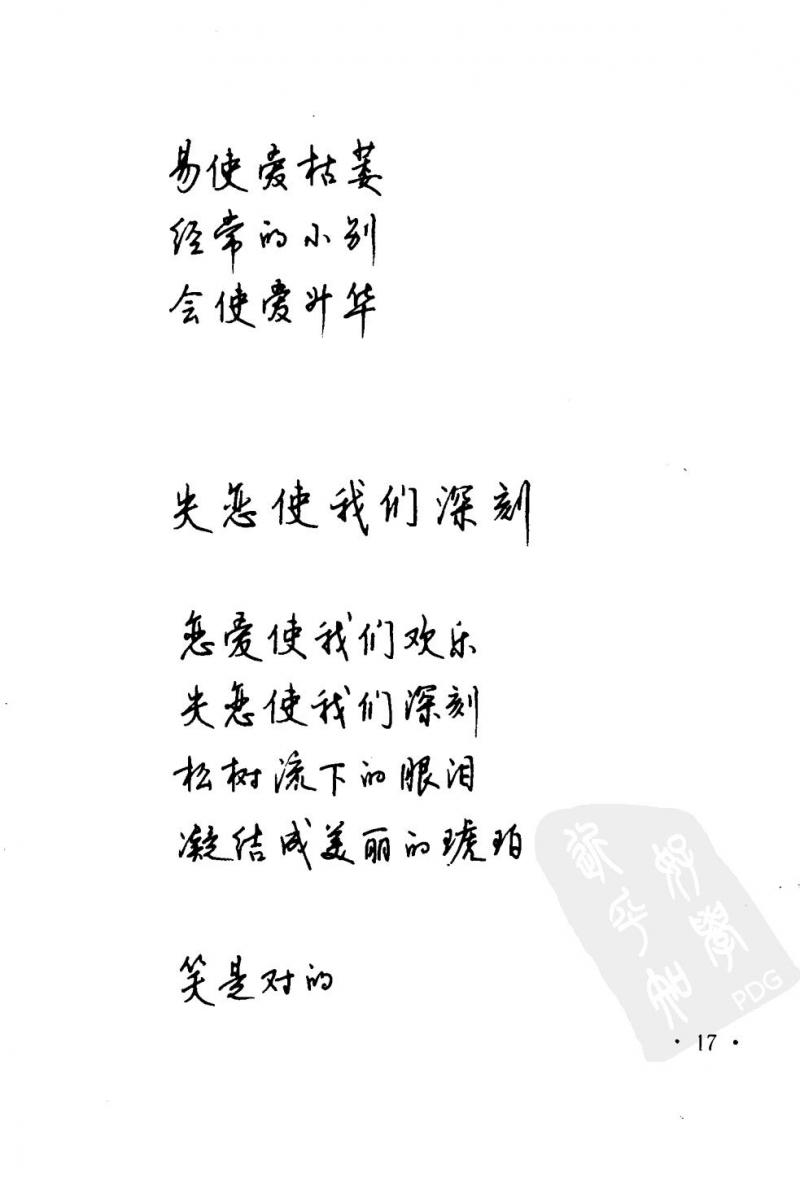 易使爱枯萎
经常的小别
会使爱升华
失恋使我们深刻
恋爱使我们欢乐
失恋使我们深刻
松树流下的眼泪
凝结成美丽的琥珀
笑是对的
PDG
· 17 ·